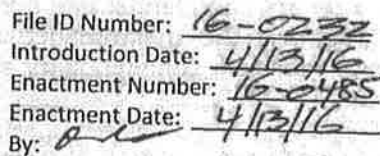 File ID Number: 16-0232
Introduction Date: 4/13/16
Enactment Number: 16-0485
Enactment Date: 4/13/16
By: